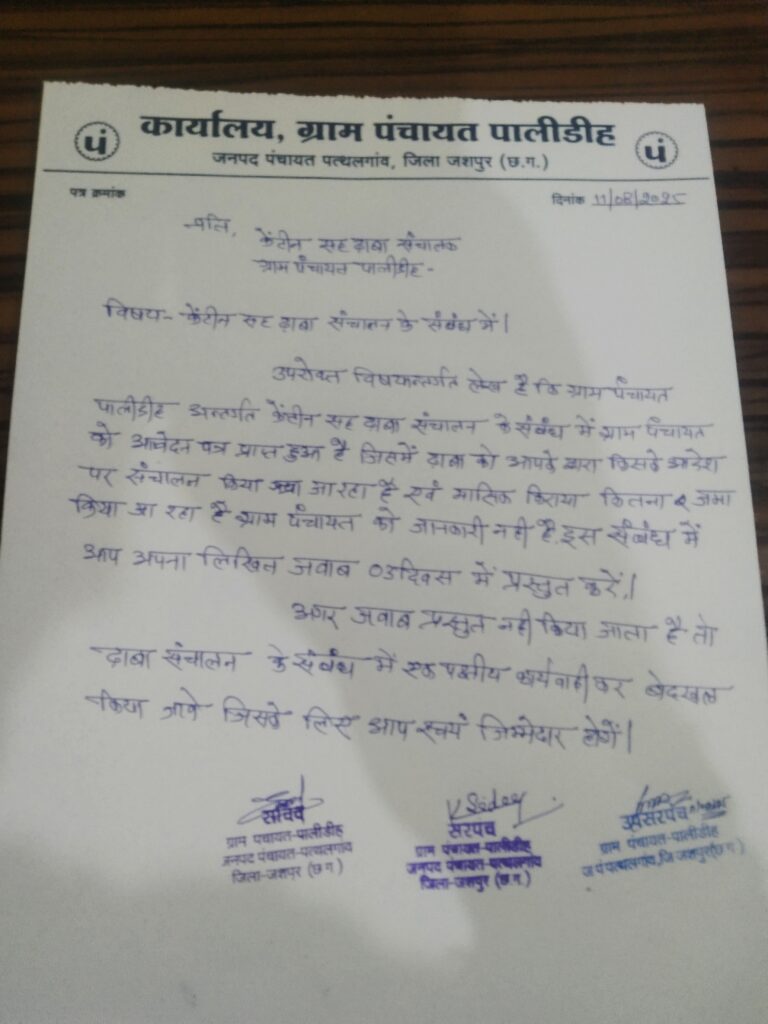 पं
कार्यालय, ग्राम पंचायत पालीडीह
पं
जनपद पंचायत पत्थलगांव, जिला जशपुर (छ.ग.)
पत्र क्रमांक
दिनांक 11/08/2025
प्रति,
केंटीन सह ढाबा संचालक
ग्राम पंचायत पालीडीह -
विषय - केंटीन सह ढाबा संचालन के संबंध में।
उपरोक्त विषयान्तर्गत लेख है कि ग्राम पंचायत
पालीडीह अन्तर्गत केंटीन सह ढाबा संचालन के संबंध में ग्राम पंचायत
को आवेदन पत्र प्राप्त हुआ है जिसमें ढाबा को आपके द्वारा किसके आदेश
पर संचालन किया जा रहा है एवं मासिक किराया कितना जमा
किया जा रहा है ग्राम पंचायत को जानकारी नहीं है. इस संबंध में
आप अपना लिखित जवाब 03 दिवस में प्रस्तुत करें।
अगर जवाब प्रस्तुत नहीं किया जाता है तो
ढाबा संचालन के संबंध में एक पक्षीय कार्यवाही कर बेदखल
किया जावे जिसके लिए आप स्वयं जिम्मेदार होगें।
सचिव
ग्राम पंचायत-पालीडीह
जनपद पंचायत-पत्थलगांव
जिला-जशपुर (छ.ग.)
सरपंच
ग्राम पंचायत-पालीडीह
जनपद पंचायत-पत्थलगांव
जिला-जशपुर (छ.ग.)
उपसरपंच
ग्राम पंचायत-पालीडीह
ज.पं.पत्थलगांव,जि.जशपुर(छ.ग.)